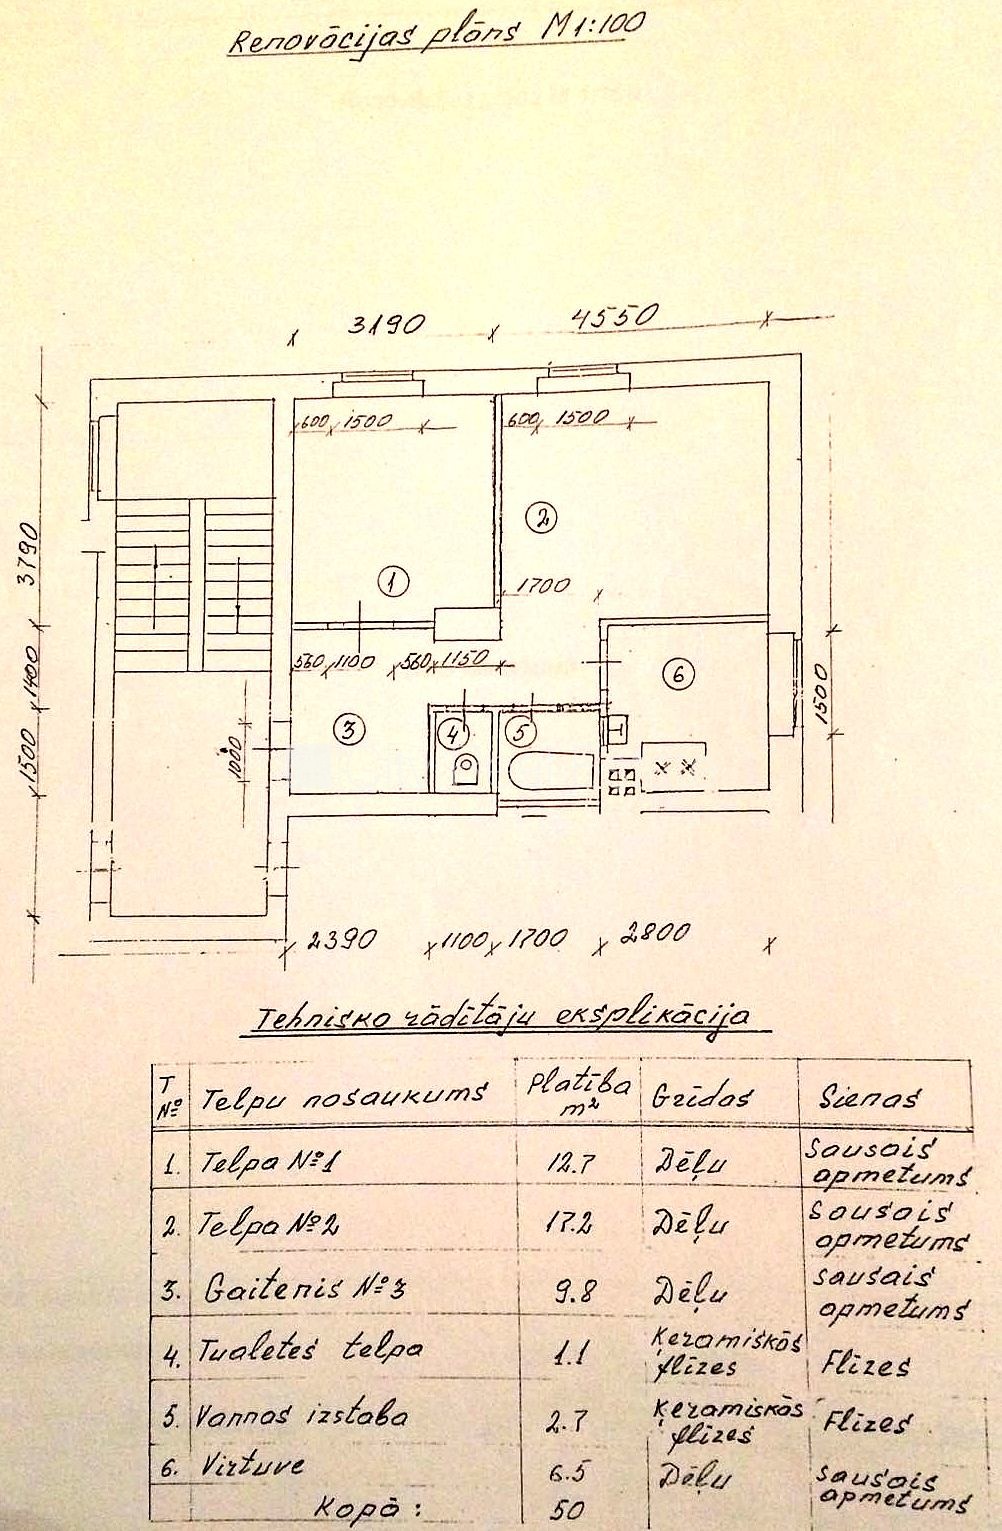 Renovācijas plāns M 1:100
3190
4550
600 1500
600 1500
3790
2
1
1700
560 1100 560 1150
6
1400
1500
3
4
5
1500
1000
2390 1100 1700 2800
Tehnisko rādītāju eksplikācija
T №
Telpu nosaukums
Platība m²
Grīdas
Sienas
1. Telpa №1 12.7 Dēļu Sausais apmetums
2. Telpa №2 17.2 Dēļu Sausais apmetums
3. Gaitenis №3 9.8 Dēļu Sausais apmetums
4. Tualetes telpa 1.1 Ķeramiskās flīzes Flīzes
5. Vannas izstaba 2.7 Ķeramiskās flīzes Flīzes
6. Virtuve 6.5 Dēļu Sausais apmetums
Kopā: 50